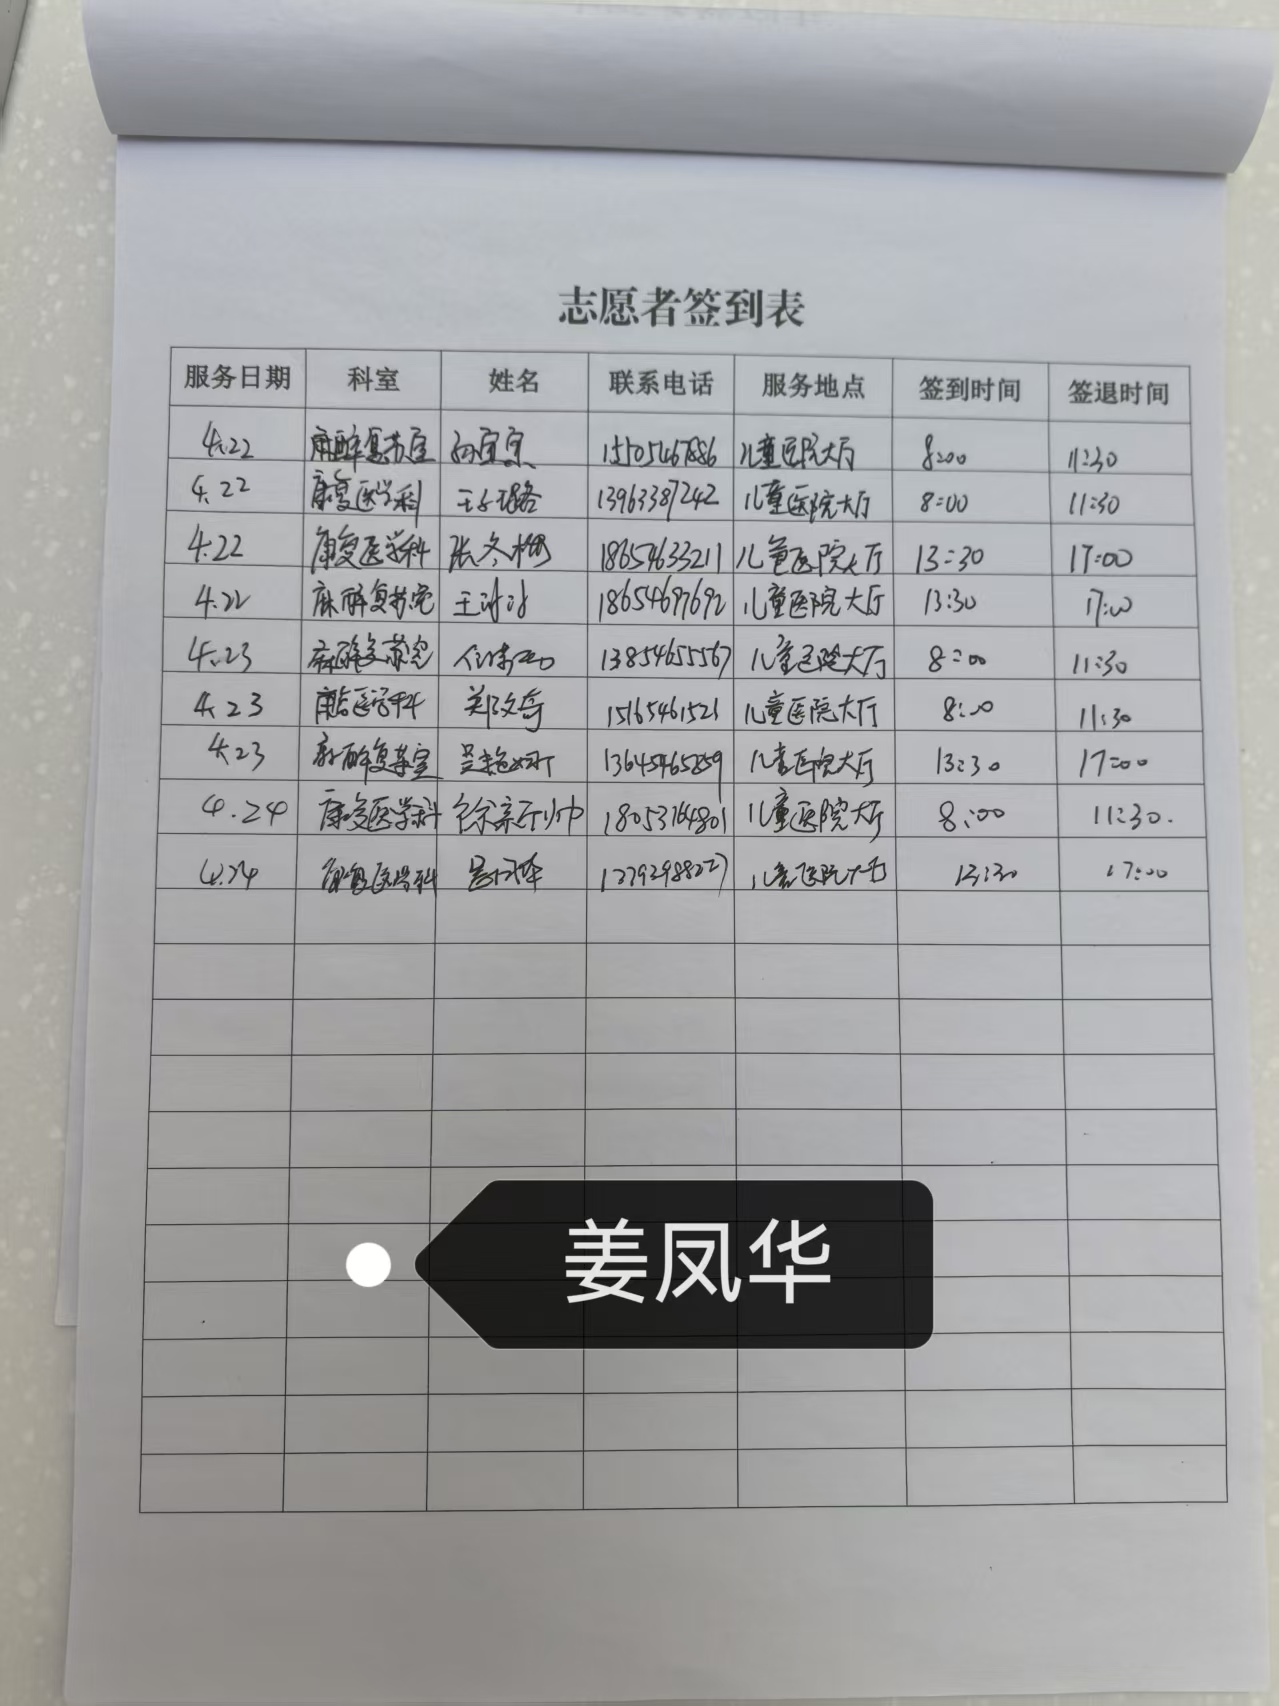 志愿者签到表
服务日期 科室 姓名 联系电话 服务地点 签到时间 签退时间
4.22 麻醉复苏室 15505467886 儿童医院大厅 8:00 11:30
4.22 康复医学科 王璐 13963387242 儿童医院大厅 8:00 11:30
4.22 康复医学科 张冬梅 18654633211 儿童医院大厅 13:30 17:00
4.22 麻醉复苏室 王 18654697692 儿童医院大厅 13:30 17:00
4.23 麻醉复苏室 13854655567 儿童医院大厅 8:00 11:30
4.23 康复医学科 郑文奇 15165461521 儿童医院大厅 8:00 11:30
4.23 麻醉复苏室 13645465859 儿童医院大厅 13:30 17:00
4.24 康复医学科 徐 儿童医院大厅 8:00 11:30.
4.24 康复医学科 儿童医院大厅 13:30 17:00
姜凤华